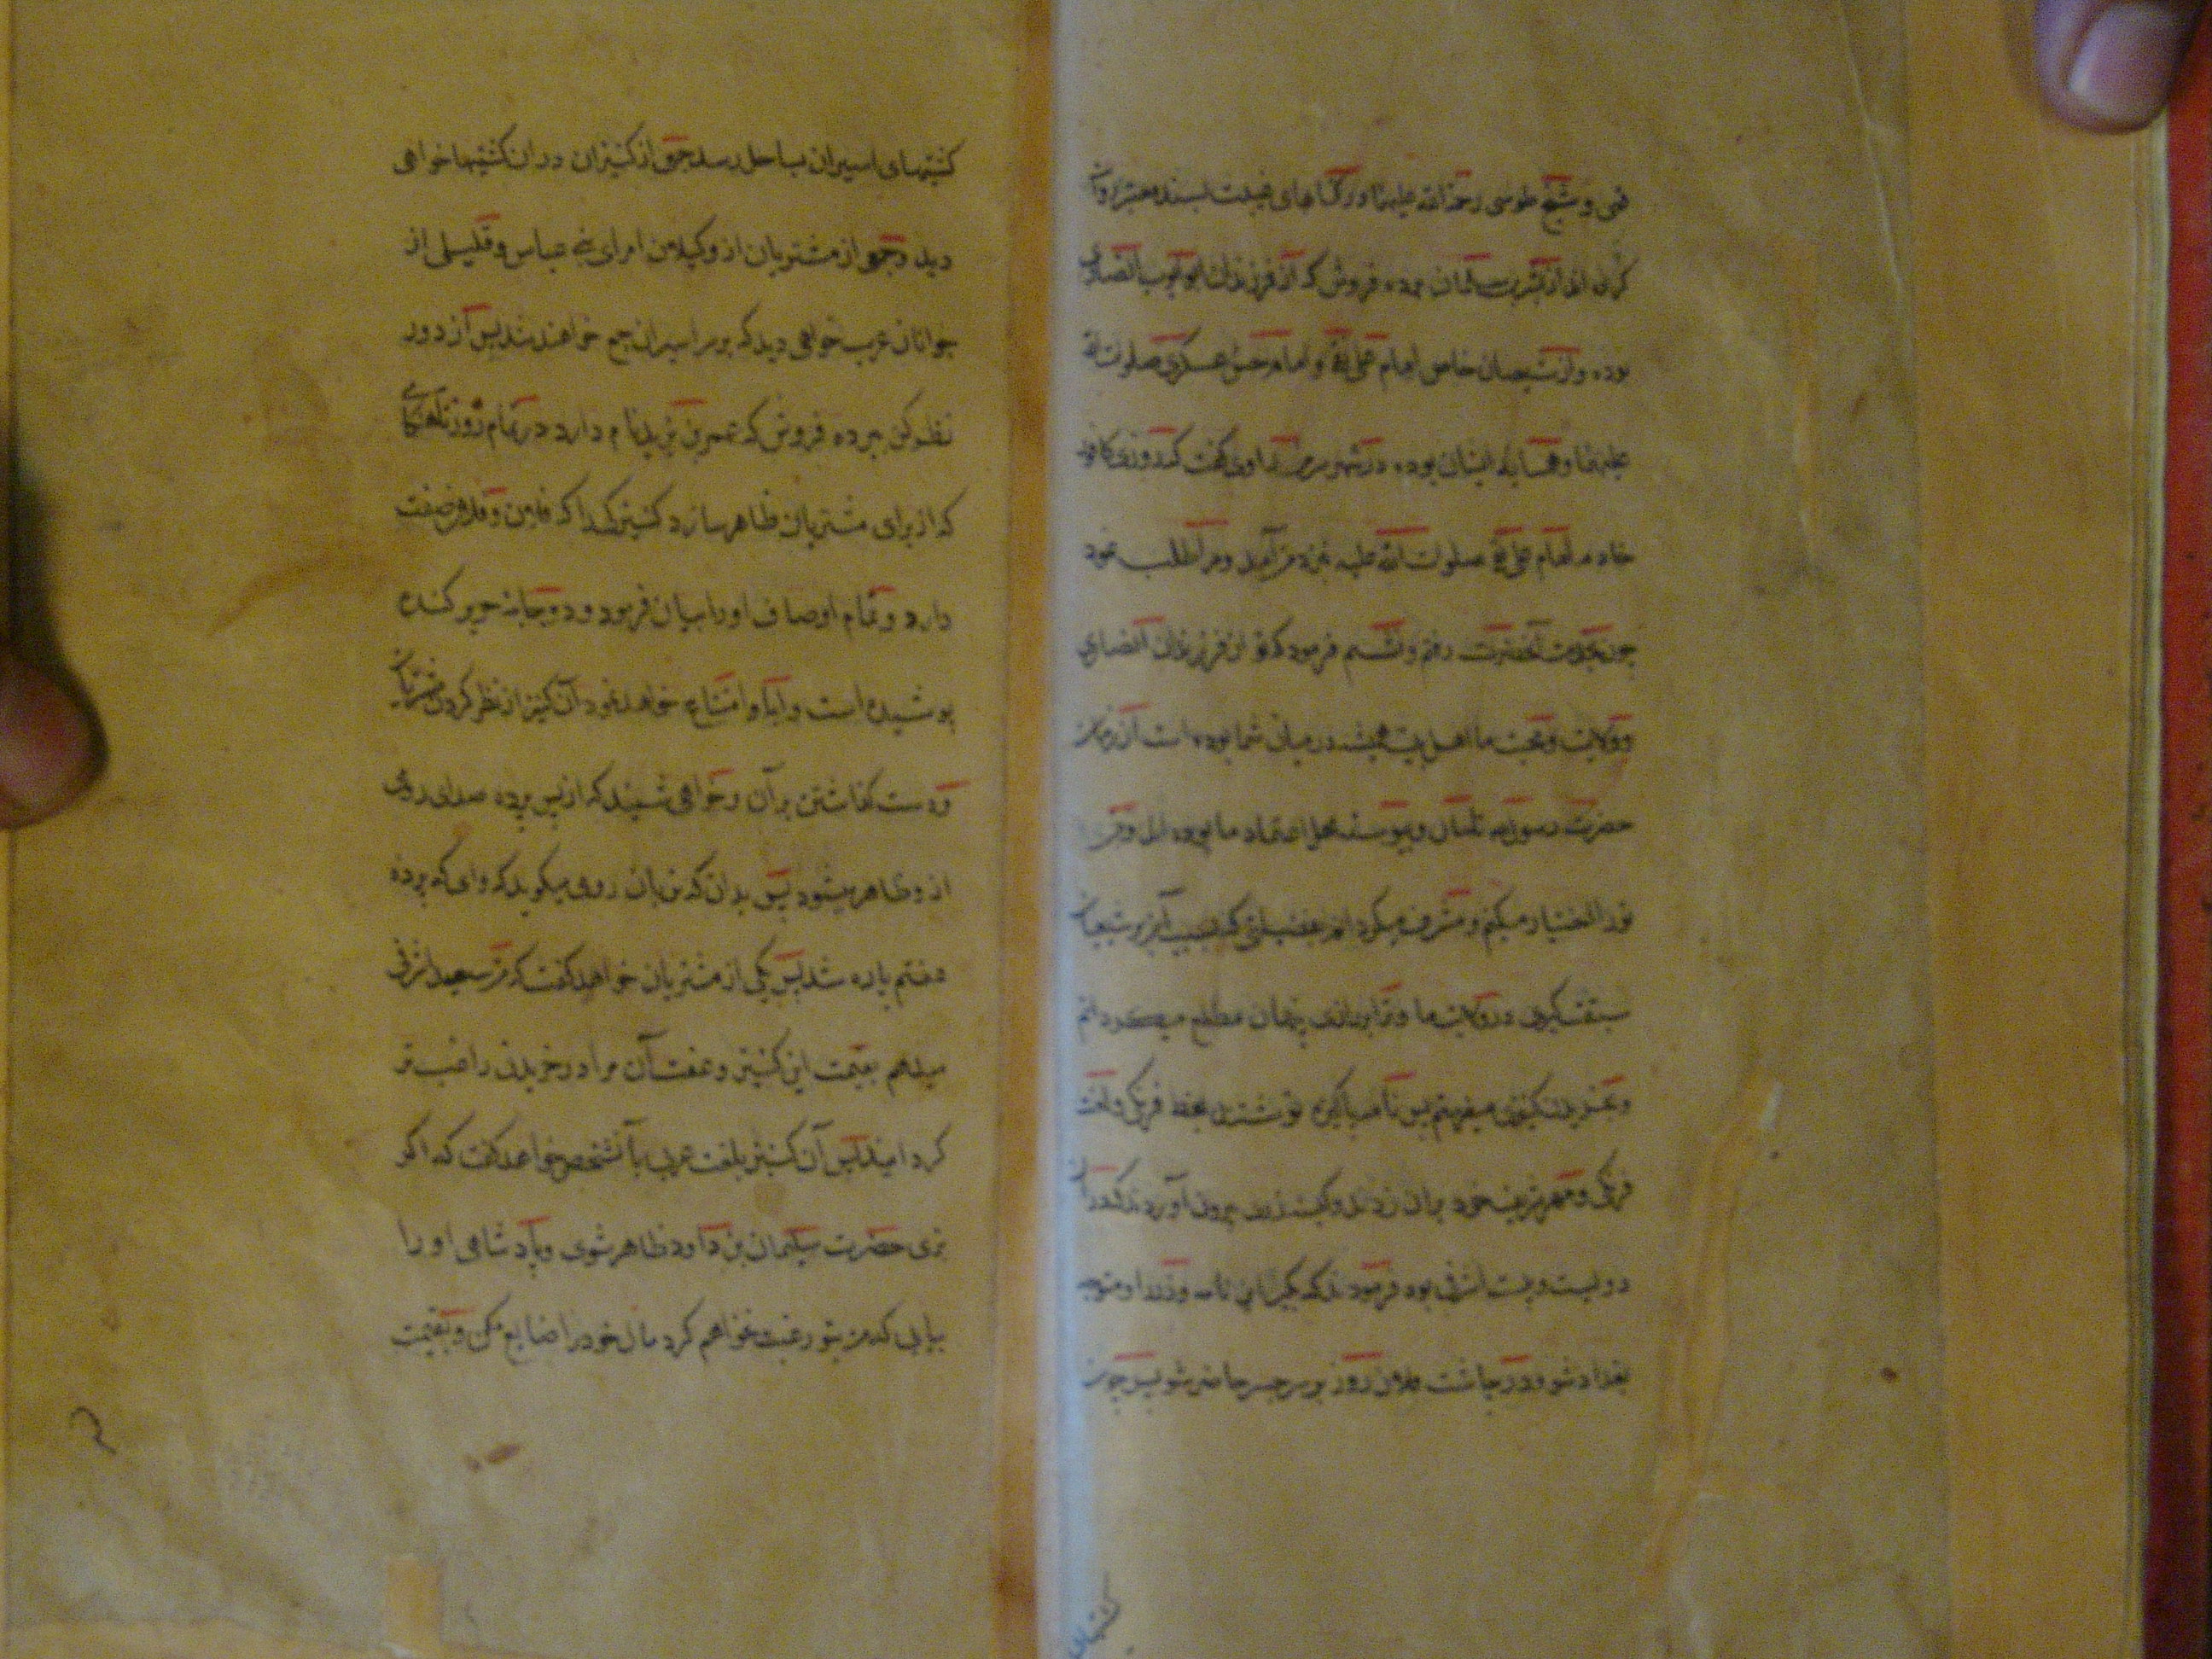 قمی و شیخ طوسی رحمة الله علیهما در کتابهای غیبت بسند معتبر روایت
کرده اند از بشر بن سلیمان برده فروش که از فرزندان ابو ایوب انصاری
بوده و از شیعیان خاص امام علی نقی و امام حسن عسکری صلوات الله
علیهما و همسایه ایشان بوده در شهر سر من رای او گفت که روزی کافور
خادم امام علی نقی صلوات الله علیه نزد من آمد و مرا طلب نمود
چون بخدمت آنحضرت رفتم و نشستم فرمود که تو از فرزندان انصاری
و ولایت و محبت ما اهل بیت همیشه در میان شما بوده است از زمان
حضرت رسول تا حال و پیوسته محل اعتماد ما بوده اید و من
تو را اختیار میکنم و مشرف میکردانم بفضیلتی که بسبب آن بر شیعیان
سبقت کیری در ولایت ما و ترا برازی پنهان مطلع میکردانم
و بخریدن کنیزی میفرستم پس نامه پاکیزه نوشتند بخط فرنکی و لغت
فرنکی و مهر شریف خود بران زدند و کیسه زری بیرون آوردند که در آن
دویست و بیست اشرفی بود فرمودند که بکیر این نامه و زر را و متوجه
بغداد شو و در چاشت فلان روز بر سر جسر حاضر شو پس چون
کشتیهای
کشتیهای اسیران بساحل رسد جمعی از کنیزان در ان کشتیها خواهی
دید و جمعی از مشتریان از وکیلان امرای بنی عباس و قلیلی از
جوانان عرب خواهی دید که بر سر اسیران جمع خواهند شد پس از دور
نظر کن ببرده فروشی که عمر بن یزید نام دارد در تمام روز تا هنکامی
که از برای مشتریان ظاهر سازد کنیزکی را که فلان و فلان صفت
دارد و تمام اوصاف او را بیان فرمود و دو جامه حریر کنده
پوشیده است و ابا و امتناع خواهد نمود آن کنیز از نظر کردن مشتریان
و دست کذاشتن بر آن و خواهی شنید که از پس پرده صدای رومی
از و ظاهر میشود پس بدان که بزبان رومی میکوید که وای که پرده
عفتم پاره شد پس یکی از مشتریان خواهد کفت که من سیصد اشرفی
میدهم بقیمت این کنیز و عفت آن مرا در خریدن راغب تر
کردانید پس آن کنیز بلغت عربی بآنشخص خواهد کفت که اکر
بزی حضرت سلیمان بن داود ظاهر شوی و پادشاهی او را
بیابی که من بتو رغبت نخواهم کرد مال خود را ضایع مکن و بقیمت